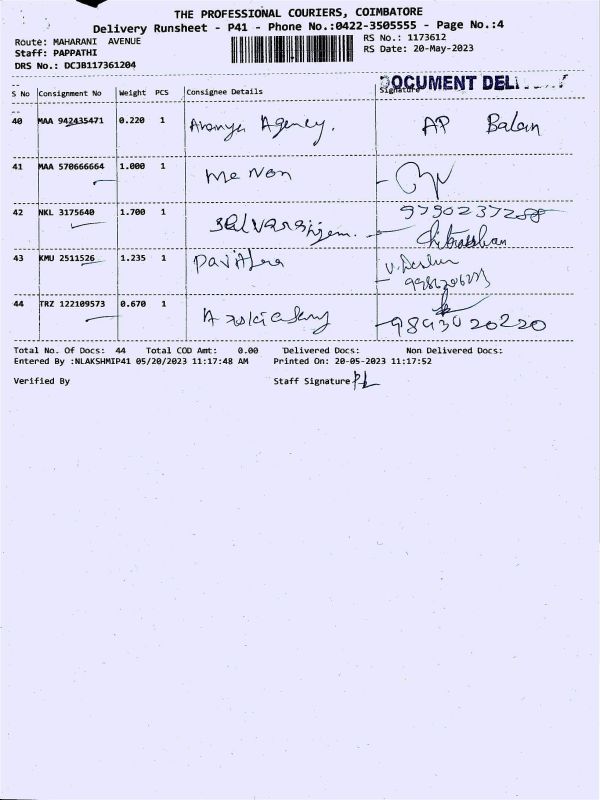 THE PROFESSIONAL COURIERS, COIMBATORE
Delivery Runsheet - P41 - Phone No.:0422-3505555 - Page No.:4
Route: MAHARANI AVENUE
Staff: PAPPATHI
DRS No.: DCJB117361204
RS No.: 1173612
RS Date: 20-May-2023
DOCUMENT DELI
S No Consignment No Weight PCS Consignee Details Signature
40 MAA 942435471 0.220 1 Aranya Agency. AP Balan
41 MAA 570666664 1.000 1 Me Non
42 NKL 3175640 1.700 1 9790237288
43 KMU 2511526 1.235 1 Pavithra
44 TRZ 122109573 0.670 1 9843020220
Total No. Of Docs: 44 Total COD Amt: 0.00 Delivered Docs: Non Delivered Docs:
Entered By :NLAKSHMIP41 05/20/2023 11:17:48 AM Printed On: 20-05-2023 11:17:52
Verified By Staff Signature